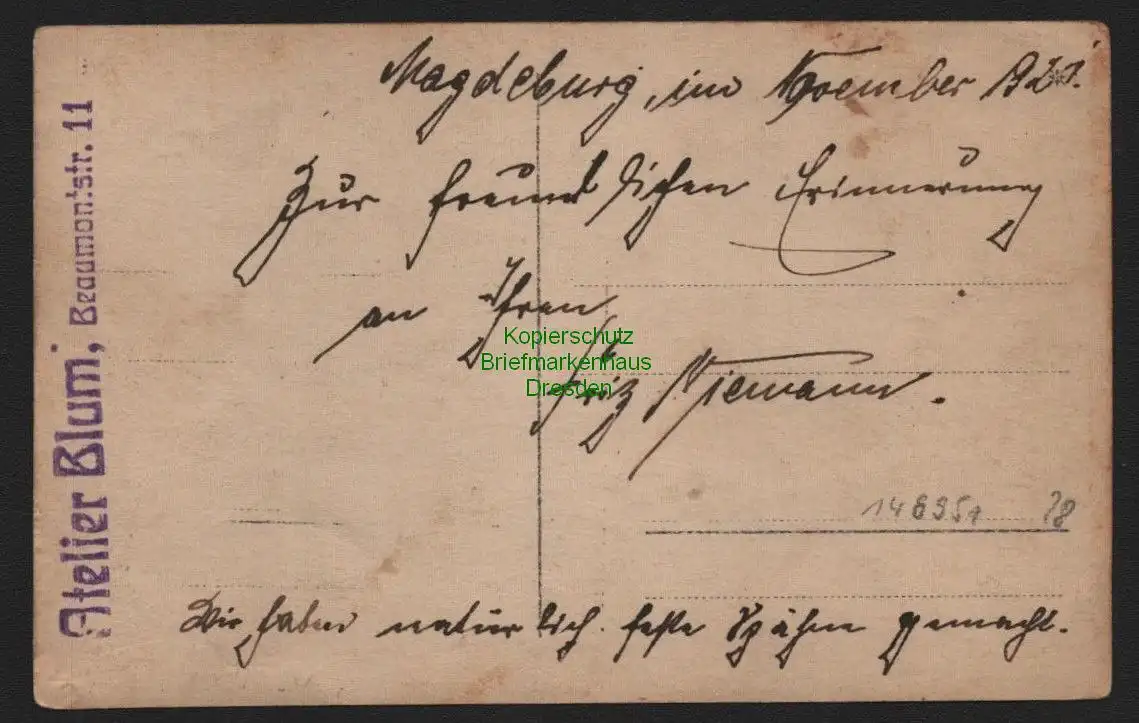 Magdeburg, im November
Zur freundlichen Erinnerung
an Ihren
Fritz Niemann.
Wir haben natürlich feste Spähne gemacht.
Atelier Blum, Beaumontstr. 11
Kopierschutz
Briefmarkenhaus
Dresden
146951 28